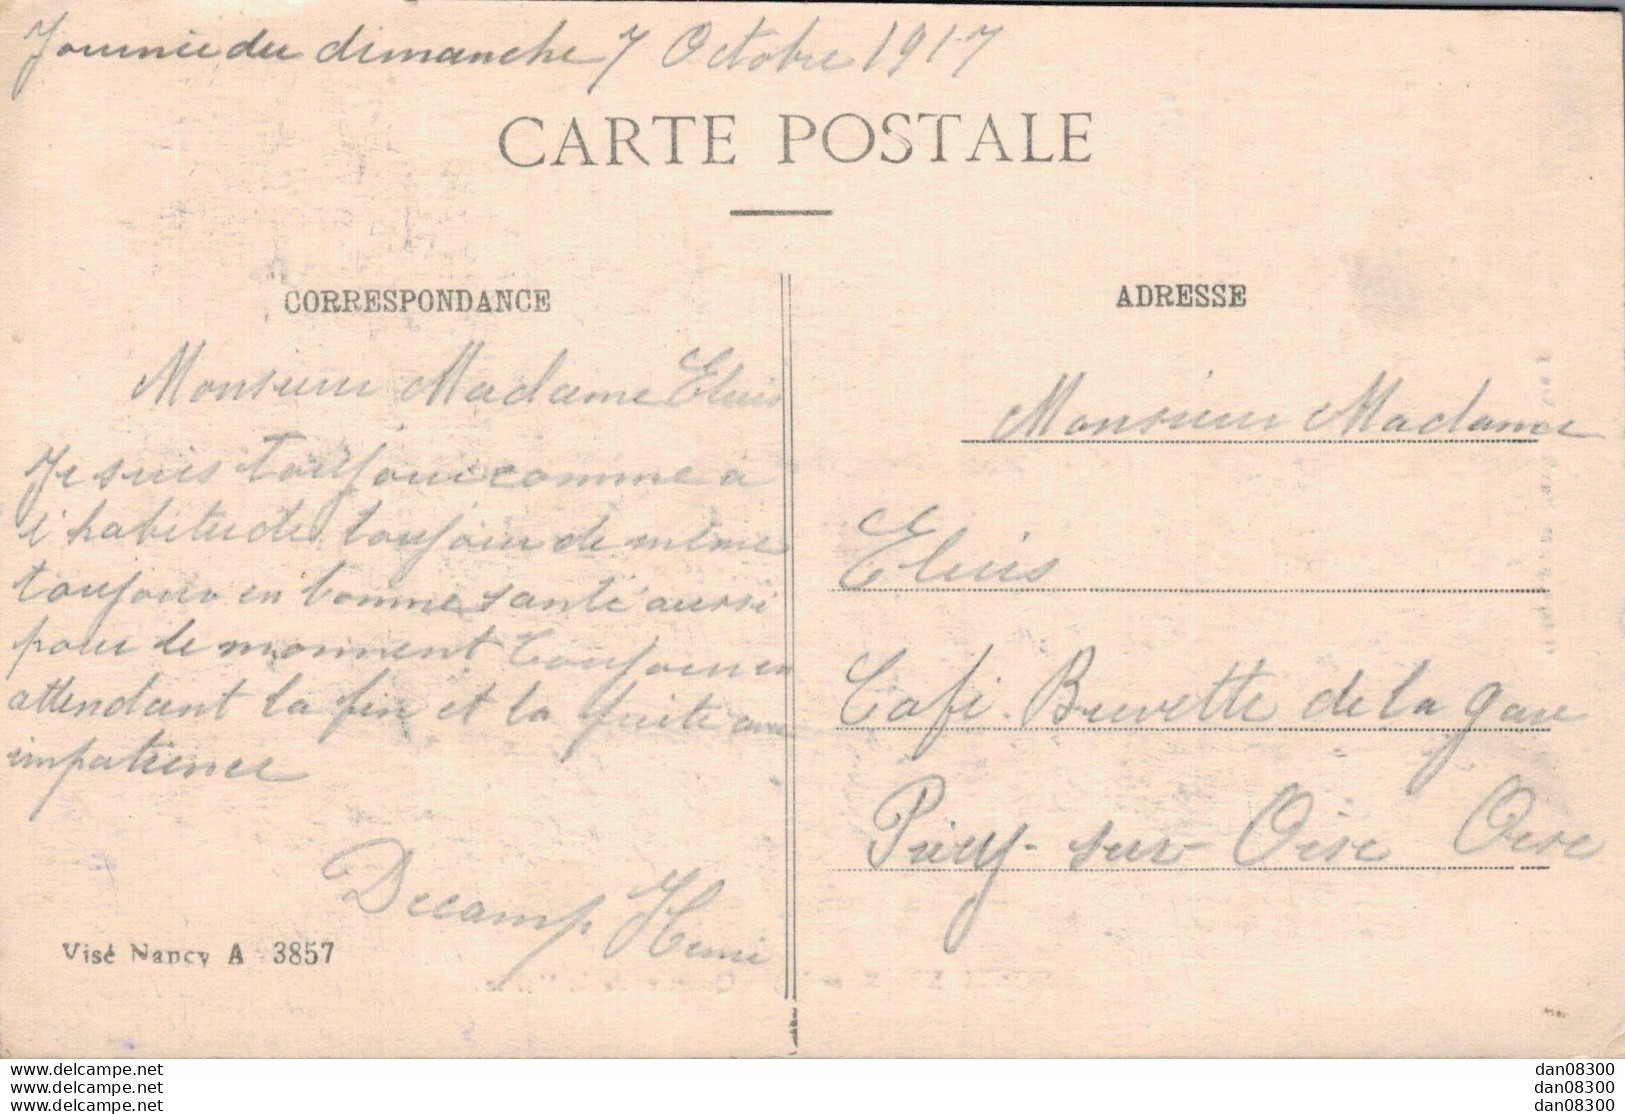 Journée du dimanche 7 Octobre 1917
CARTE POSTALE
CORRESPONDANCE
Monsieur Madame Eluis
Je suis toujour comme à
l'habitude toujour de même
toujour en bonne santé aussi
pour le monment toujour en
attendant la fin et la suite avec
impatience
Decamp Henri
Visé Nancy A 3857
ADRESSE
Monsieur Madame
Eluis
Café Buvette de la gare
Précy-sur Oise Oise
www.delcampe.net
www.delcampe.net
www.delcampe.net
dan08300
dan08300
dan08300